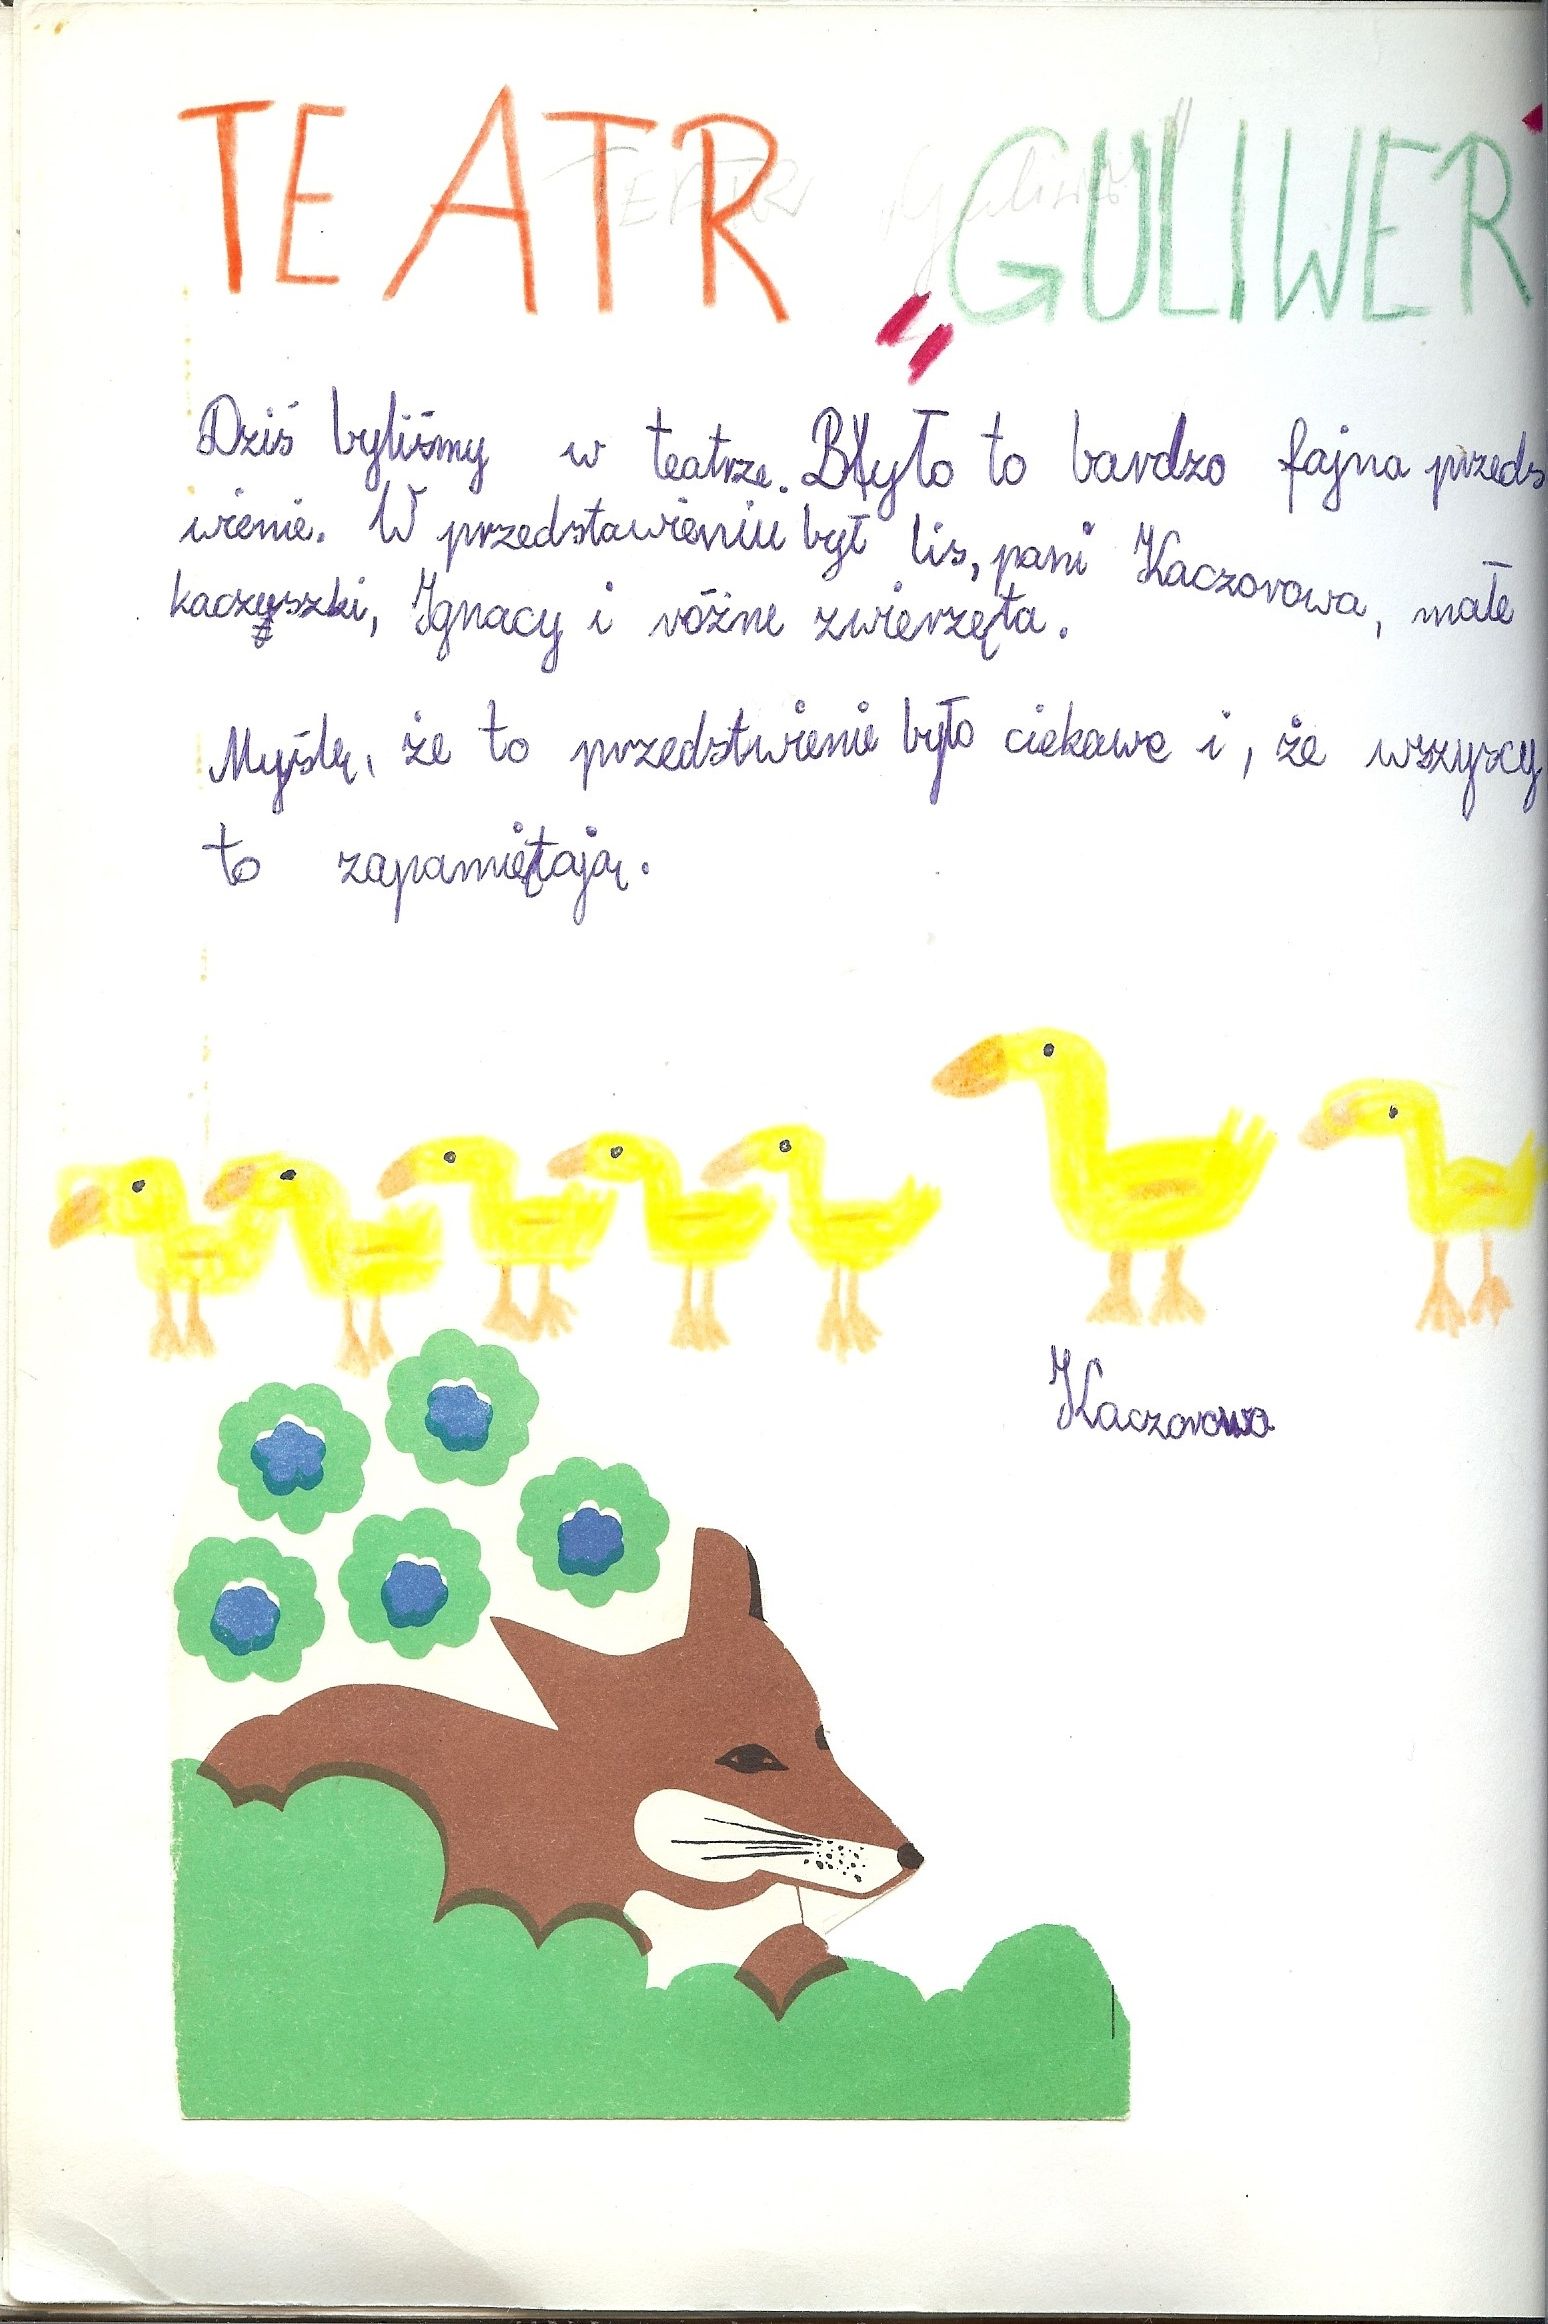 TEATR „GULIWER
TEATR Guliwer
Dziś byliśmy w teatrze. Było to bardzo fajna przeds
wienie. W przedstawieniu był lis, pani Kaczorowa, małe
kaczyszki, Ignacy i różne zwierzęta.
Myślę, że to przedstwienie było ciekawe i, że wszyscy
to zapamiętają.
Kaczorowa